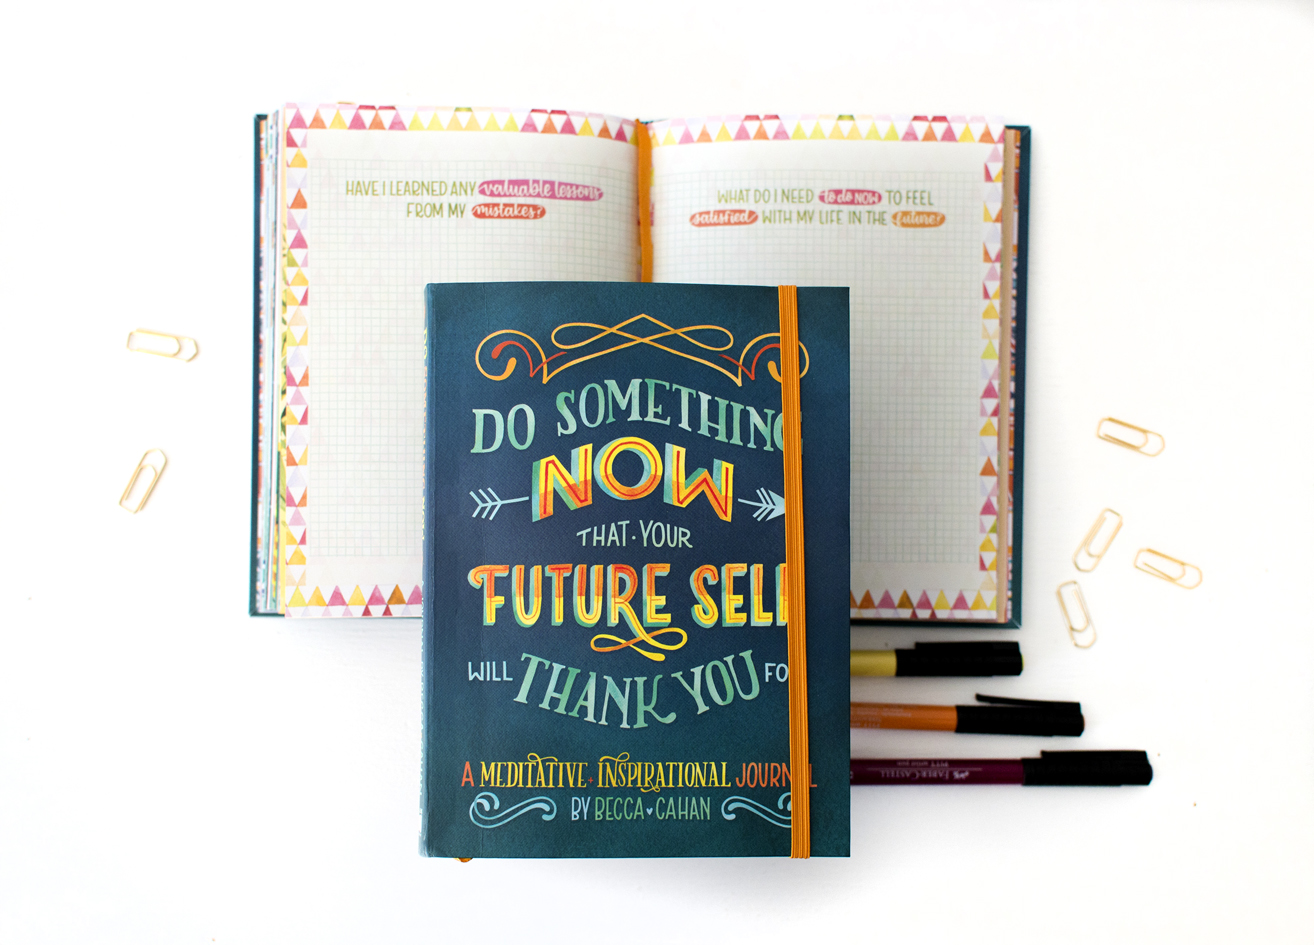 HAVE I LEARNED ANY valuable lessons
FROM MY mistakes?
WHAT DO I NEED to do NOW TO FEEL
satisfied WITH MY LIFE IN THE future?
DO SOMETHING
NOW
THAT · YOUR
FUTURE SELF
WILL THANK YOU FO
A MEDITATIVE + INSPIRATIONAL JOURNAL
BY BECCA CAHAN
PITT artist pen
FABER-CASTELL